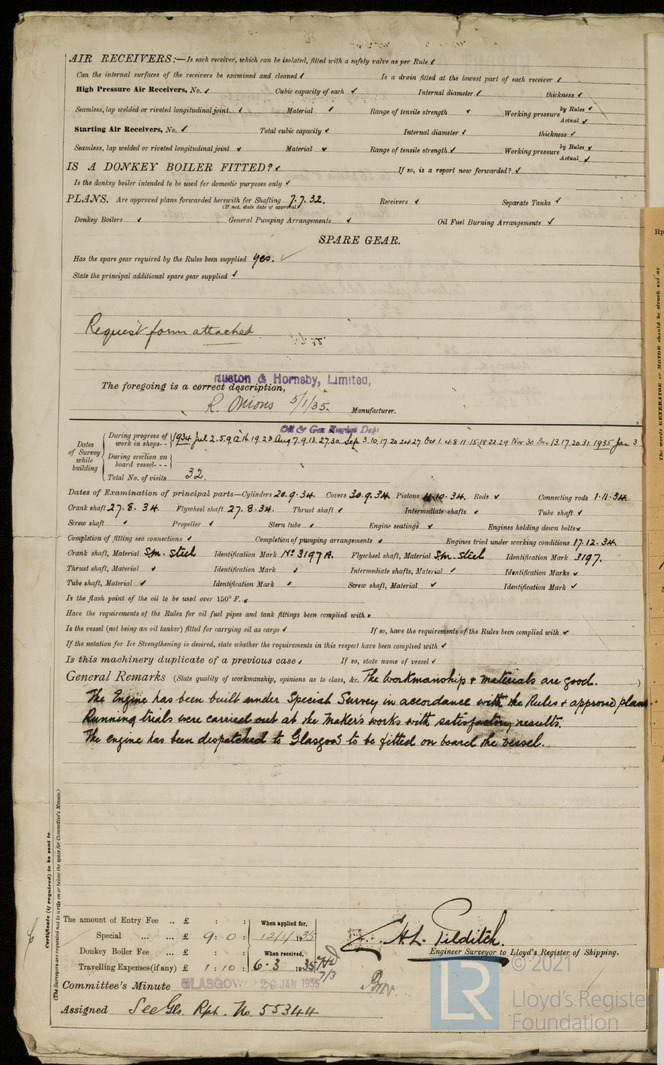 AIR RECEIVERS:—Is each receiver, which can be isolated, fitted with a safety valve as per Rule ✓
Can the internal surfaces of the receivers be examined and cleaned ✓ Is a drain fitted at the lowest part of each receiver ✓
High Pressure Air Receivers, No. ✓ Cubic capacity of each ✓ Internal diameter ✓ thickness ✓
Seamless, lap welded or riveted longitudinal joint ✓ Material ✓ Range of tensile strength ✓ Working pressure by Rules ✓
Actual ✓
Starting Air Receivers, No. ✓ Total cubic capacity ✓ Internal diameter ✓ thickness ✓
Seamless, lap welded or riveted longitudinal joint ✓ Material ✓ Range of tensile strength ✓ Working pressure by Rules ✓
Actual ✓
IS A DONKEY BOILER FITTED? ✓ If so, is a report now forwarded? ✓
Is the donkey boiler intended to be used for domestic purposes only ✓
PLANS. Are approved plans forwarded herewith for Shafting 7.7.32. Receivers ✓ Separate Tanks ✓
(If not, state date of approval)
Donkey Boilers ✓ General Pumping Arrangements ✓ Oil Fuel Burning Arrangements ✓
SPARE GEAR.
Has the spare gear required by the Rules been supplied yes. ✓
State the principal additional spare gear supplied ✓
Request form attached
Ruston & Hornsby, Limited,
The foregoing is a correct description,
R. Onions 5/1/35. Manufacturer.
Dates of Survey while building
During progress of work in shops-- 1934 Jul 2.5.9.12.16.19.23 Aug 7.9.13.27.30 Sep 3.10.17.20.24.27 Oct 1.4.8.11.15.18.22.29 Nov 30 Dec 13.17.20.31 1935 Jan 3
During erection on board vessel---
Total No. of visits 32.
Dates of Examination of principal parts—Cylinders 20.9.34. Covers 20.9.34. Pistons 4.10.34. Rods ✓ Connecting rods 1.11.34.
Crank shaft 27.8.34. Flywheel shaft 27.8.34. Thrust shaft ✓ Intermediate shafts ✓ Tube shaft ✓
Screw shaft ✓ Propeller ✓ Stern tube ✓ Engine seatings ✓ Engines holding down bolts ✓
Completion of fitting sea connections ✓ Completion of pumping arrangements ✓ Engines tried under working conditions 17.12.34.
Crank shaft, Material Sm. steel Identification Mark No 3197A. Flywheel shaft, Material Sm. steel Identification Mark 3197.
Thrust shaft, Material ✓ Identification Mark ✓ Intermediate shafts, Material ✓ Identification Marks ✓
Tube shaft, Material ✓ Identification Mark ✓ Screw shaft, Material ✓ Identification Mark ✓
Is the flash point of the oil to be used over 150° F. ✓
Have the requirements of the Rules for oil fuel pipes and tank fittings been complied with ✓
Is the vessel (not being an oil tanker) fitted for carrying oil as cargo ✓ If so, have the requirements of the Rules been complied with ✓
If the notation for Ice Strengthening is desired, state whether the requirements in this respect have been complied with ✓
Is this machinery duplicate of a previous case ✓ If so, state name of vessel ✓
General Remarks (State quality of workmanship, opinions as to class, &c. The workmanship & materials are good.)
The Engine has been built under Special Survey in accordance with the Rules & approved plans
Running trials were carried out at the Makers works with satisfactory results.
The engine has been dispatched to Glasgow to be fitted on board the vessel.
Certificate (if required) to be sent to
(The Surveyors are requested not to write on or below the space for Committee's Minute.)
The amount of Entry Fee .. £ : : When applied for,
Special ... ... £ 9 : 0 : 12/1/1935
Donkey Boiler Fee ... £ : : When received,
Travelling Expenses (if any) £ 1 : 10 : 6-3 1935 7/3
H. L. Pilditch.
Engineer Surveyor to Lloyd's Register of Shipping.
Committee's Minute GLASGOW 29 JAN 1935
Assigned See Gls. Rpt. No. 55344
LR © 2021
Lloyd's Register
Foundation